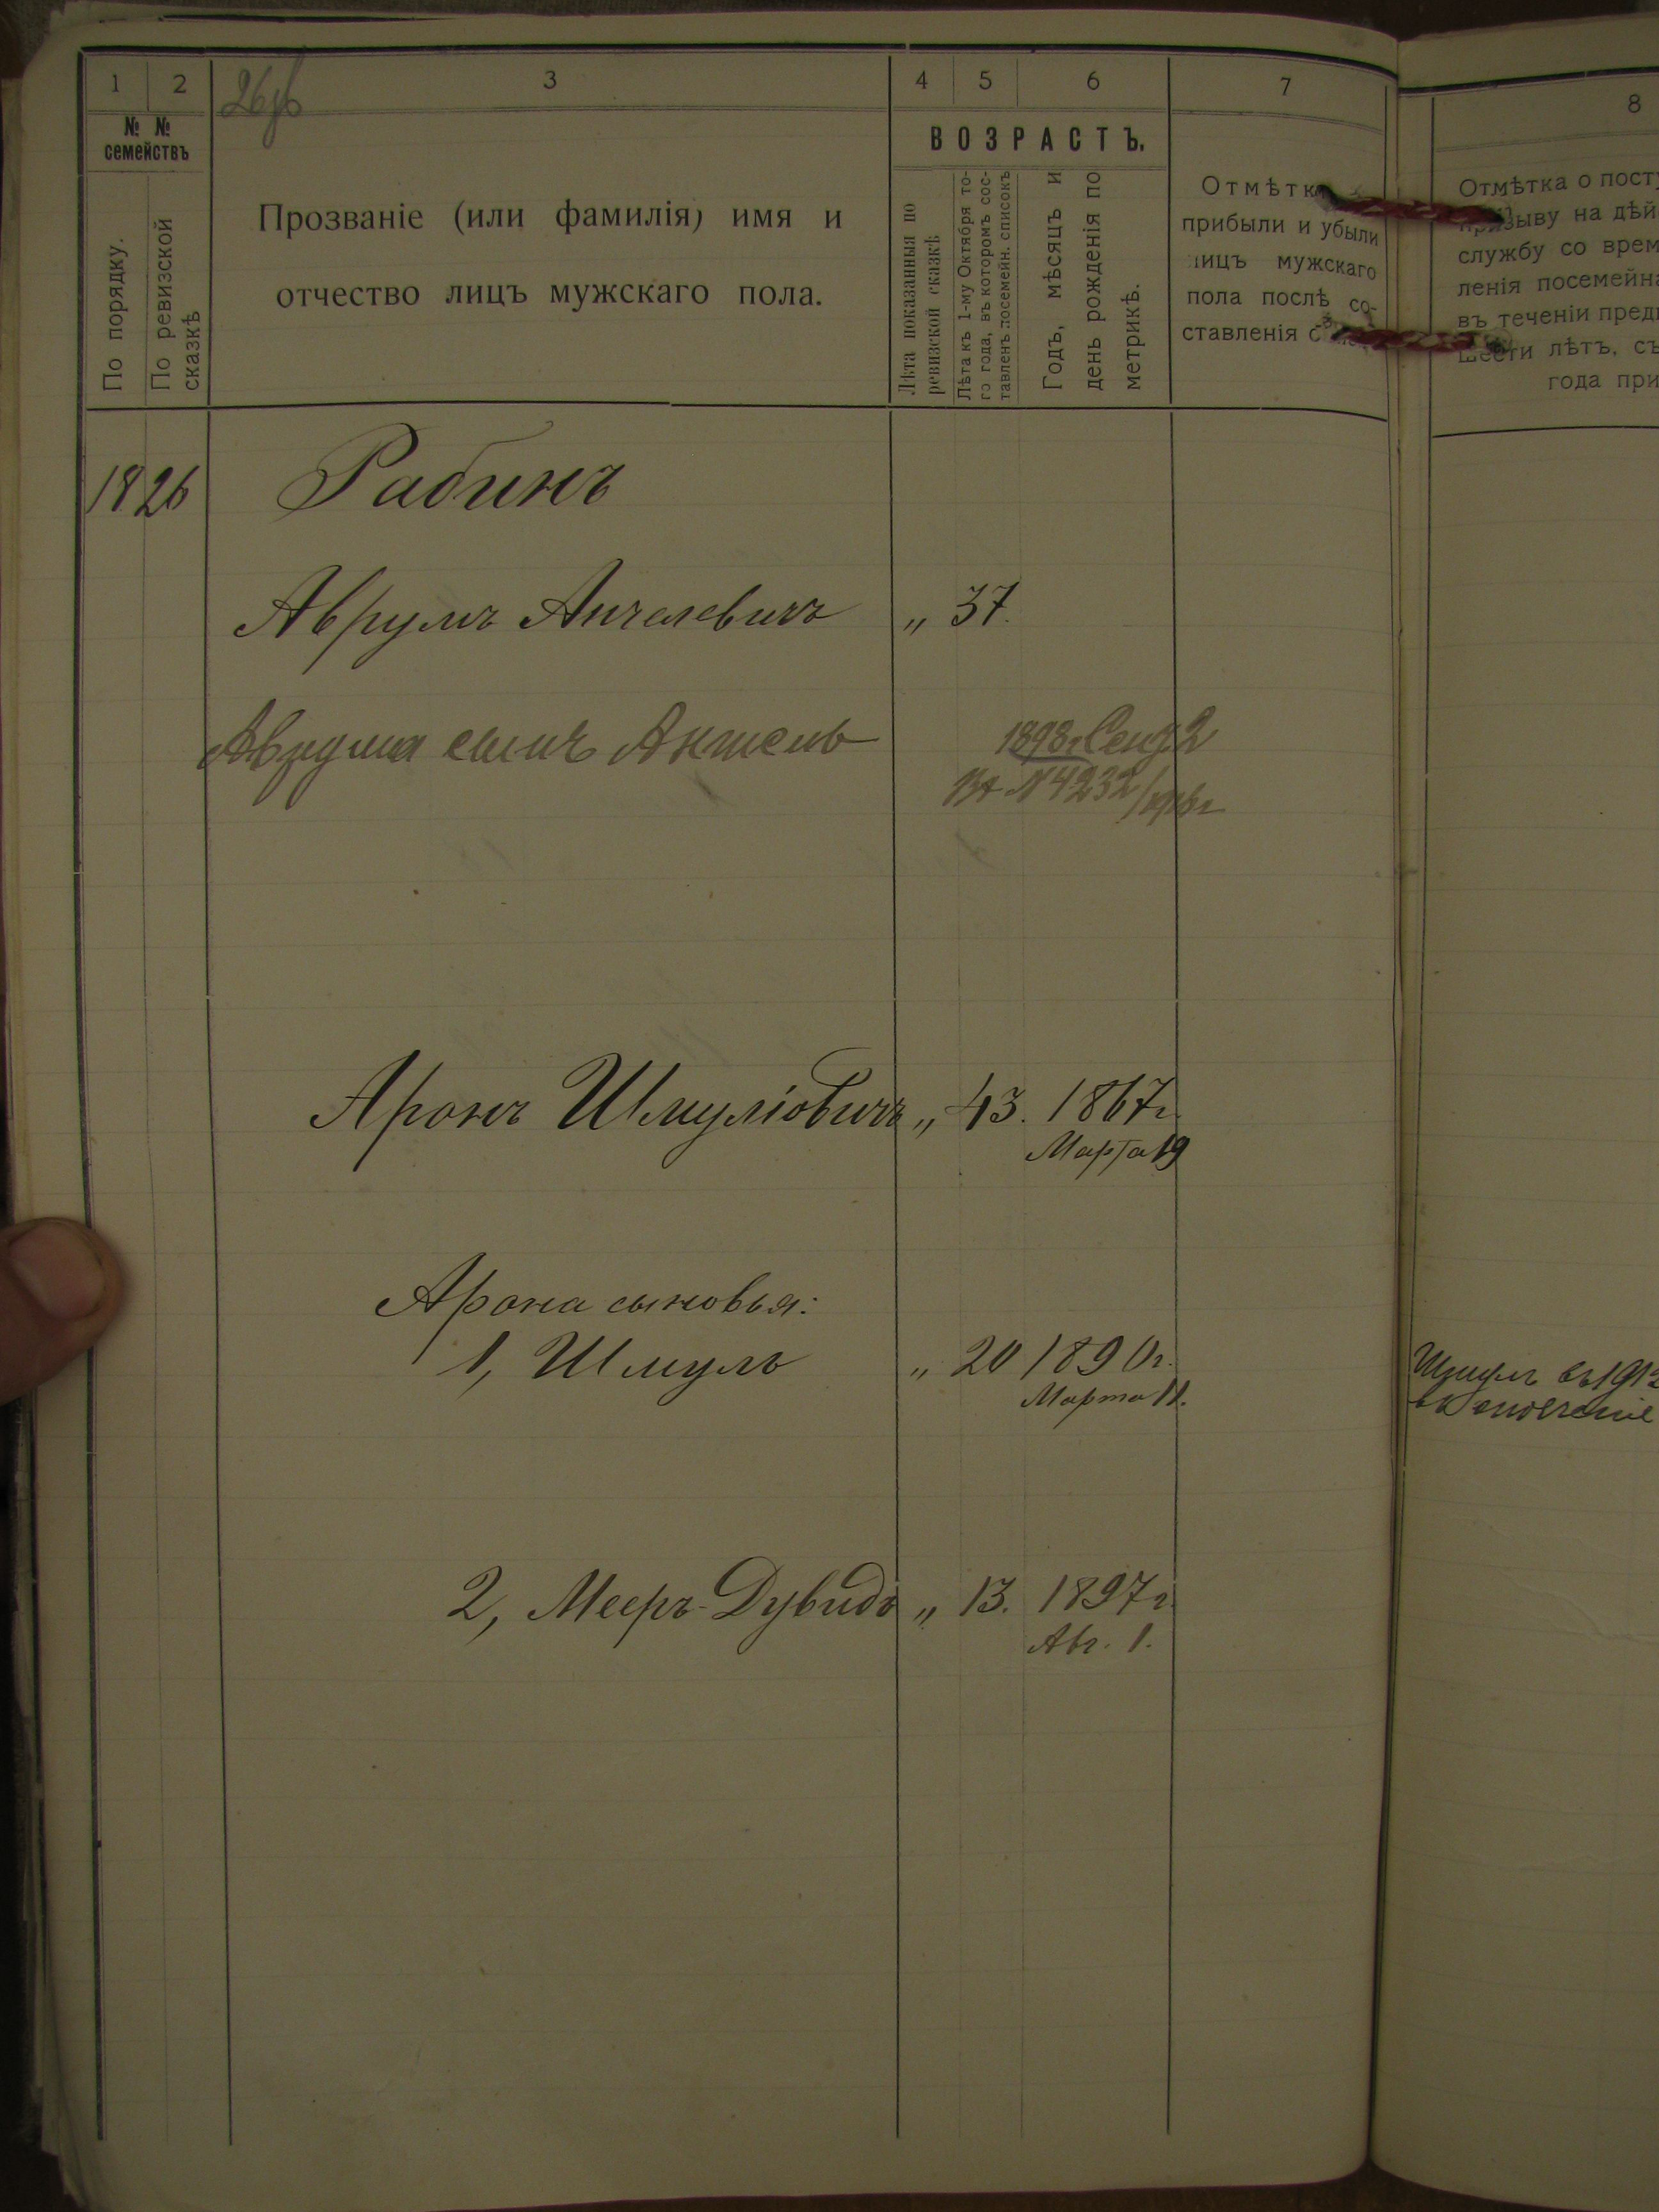 1 2 3 4 5 6 7
№ № семействъ
По порядку.
По ревизской сказкѣ
Прозваніе (или фамилія) имя и
отчество лицъ мужскаго пола.
ВОЗРАСТЪ.
Лѣта показанныя по
ревизской сказкѣ
Лѣта къ 1-му Октября то-
го года, въ которомъ сос-
тавленъ посемейн. списокъ
Годъ, мѣсяцъ и
день рожденія по
метрикѣ.
Отмѣтка
прибыли и убыли
лицъ мужскаго
пола послѣ со-
ставленія
8
Отмѣтка о посту
призыву на дѣй
службу со врем
ленія посемейна
въ теченіи пред
шести лѣтъ, съ
года при
1826 Рабинъ
Аврумъ Анчелевичъ „ 37.
Аврума сынъ 1898г. 2
№ 4232
Аронъ Шмуліовичъ „ 43. 1867г.
Марта 19
Арона сыновья:
1, Шмуль „ 20 1890г.
Марта 11.
Шмуль въ 1912
въ ополченіе
2, Мееръ-Дувидъ „ 13. 1897г.
Авг. 1.